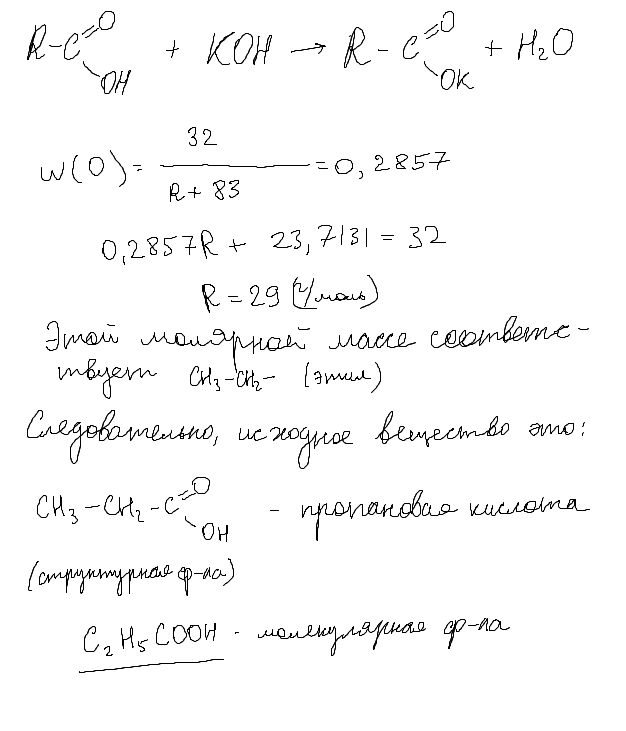 R-C=O OH + KOH → R-C=O OK + H₂O
w(O) = 32 / R + 83 = 0,2857
0,2857R + 23,7131 = 32
R = 29 (г/моль)
Этой молярной массе соответс-
твует CH₃-CH₂- (этил)
Следовательно, исходное вещество это:
CH₃-CH₂-C=O OH - пропановая кислота
(структурная ф-ла)
C₂H₅COOH - молекулярная ф-ла